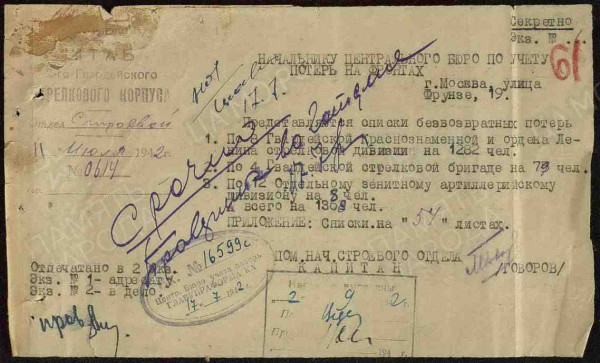 Секретно
Экз. №
ШТАБ
Гвардейского
СТРЕЛКОВОГО КОРПУСА
Отдел Строевой
11 Июля 1942г
№ 0614
НАЧАЛЬНИКУ ЦЕНТРАЛЬНОГО БЮРО ПО УЧЕТУ
ПОТЕРЬ НА ФРОНТАХ
г.Москва, улица
Фрунзе, 19.
61
17.7
Срочно
Представляются списки безвозвратных потерь
1. По 8 Гвардейской Краснознаменной и Ордена Ле-
нина стрелковой дивизии на 1282 чел.
2. По 4 Гвардейской стрелковой бригаде на 78 чел.
3. По 12 Отдельному зенитному артиллерийскому
дивизиону на 8 чел.
всего на 1368 чел.
ПРИЛОЖЕНИЕ: Списки на "54" листах.
ПОМ.НАЧ.СТРОЕВОГО ОТДЕЛА
КАПИТАН /ГОВОРОВ/
Отпечатано в 2 экз.
Экз. № 1- адресату
Экз. № 2- в дело.
Вх. № 16599с
Центр. Бюро учета потерь
17. 7 1942г.
2 9 2г.